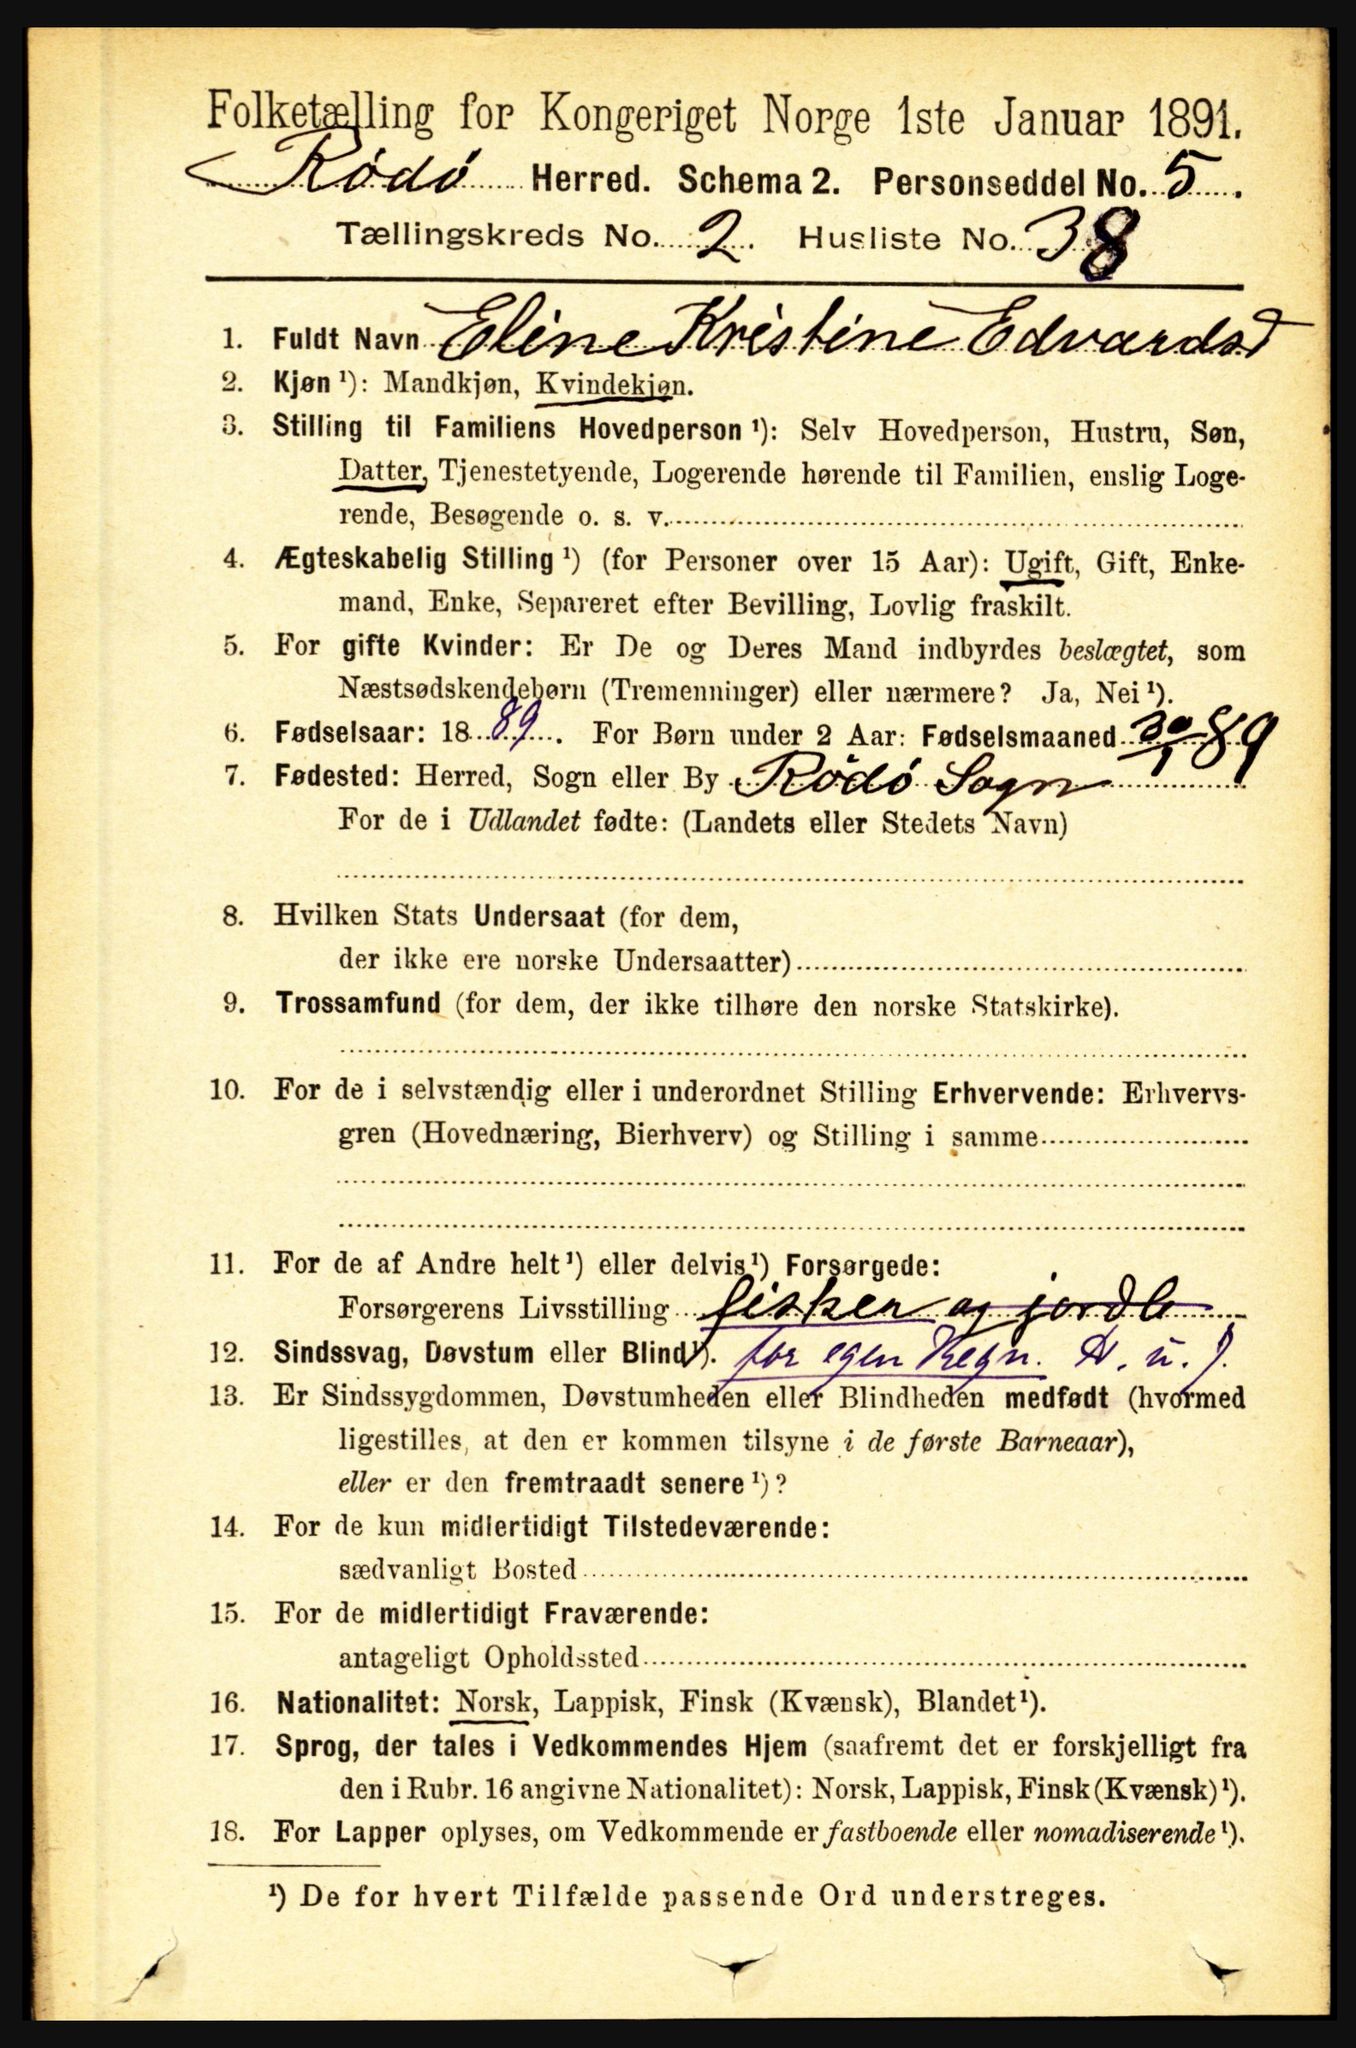 Folketælling for Kongeriget Norge 1ste Januar 1891.
Rödö Herred. Schema 2. Personseddel No. 5.
Tællingskreds No. 2. Husliste No. 38
1. Fuldt Navn Eline Kristine Edvardsd
2. Kjøn ¹): Mandkjøn, Kvindekjøn.
3. Stilling til Familiens Hovedperson ¹): Selv Hovedperson, Hustru, Søn,
Datter, Tjenestetyende, Logerende hørende til Familien, enslig Loge-
rende, Besøgende o. s. v.
4. Ægteskabelig Stilling ¹) (for Personer over 15 Aar): Ugift, Gift, Enke-
mand, Enke, Separeret efter Bevilling, Lovlig fraskilt.
5. For gifte Kvinder: Er De og Deres Mand indbyrdes beslægtet, som
Næstsødskendebørn (Tremenninger) eller nærmere? Ja, Nei ¹).
6. Fødselsaar: 1889. For Børn under 2 Aar: Fødselsmaaned 30/1 89
7. Fødested: Herred, Sogn eller By Rödö Sogn
For de i Udlandet fødte: (Landets eller Stedets Navn)
8. Hvilken Stats Undersaat (for dem,
der ikke ere norske Undersaatter)
9. Trossamfund (for dem, der ikke tilhøre den norske Statskirke).
10. For de i selvstændig eller i underordnet Stilling Erhvervende: Erhvervs-
gren (Hovednæring, Bierhverv) og Stilling i samme
11. For de af Andre helt ¹) eller delvis ¹) Forsørgede:
Forsørgerens Livsstilling fisker og jordb
12. Sindssvag, Døvstum eller Blind ¹). for egen Regn.
13. Er Sindssygdommen, Døvstumheden eller Blindheden medfødt (hvormed
ligestilles, at den er kommen tilsyne i de første Barneaar),
eller er den fremtraadt senere ¹)?
14. For de kun midlertidigt Tilstedeværende:
sædvanligt Bosted
15. For de midlertidigt Fraværende:
antageligt Opholdssted
16. Nationalitet: Norsk, Lappisk, Finsk (Kvænsk), Blandet ¹).
17. Sprog, der tales i Vedkommendes Hjem (saafremt det er forskjelligt fra
den i Rubr. 16 angivne Nationalitet): Norsk, Lappisk, Finsk (Kvænsk) ¹).
18. For Lapper oplyses, om Vedkommende er fastboende eller nomadiserende ¹).
¹) De for hvert Tilfælde passende Ord understreges.